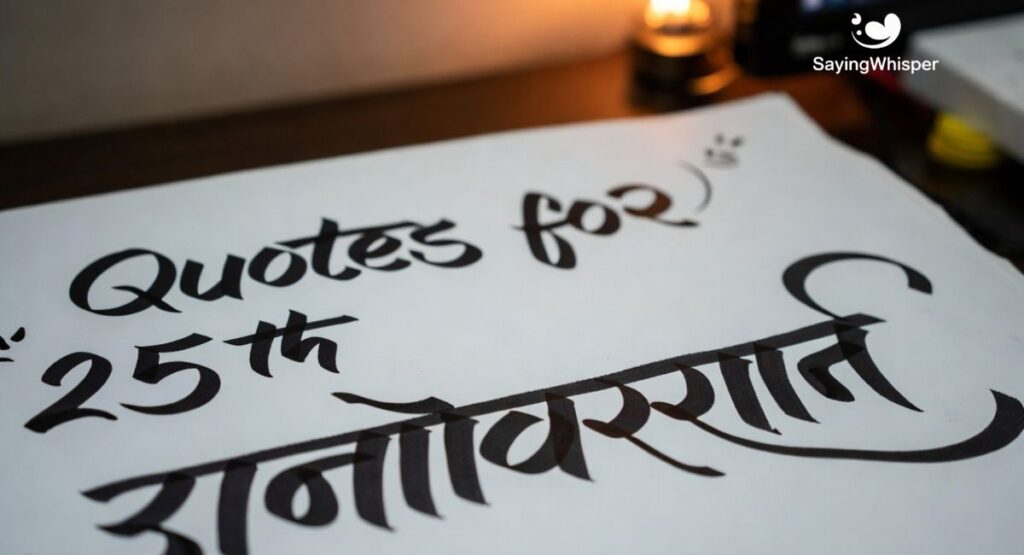 SayingWhisper
Quotes for
25th